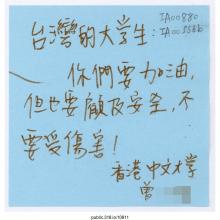 IA00880
台灣的大学生:IA00556b
你們要加油,
但也要顧及安全,不
要受傷害!
香港中文大学
曾
public.318.io/10811